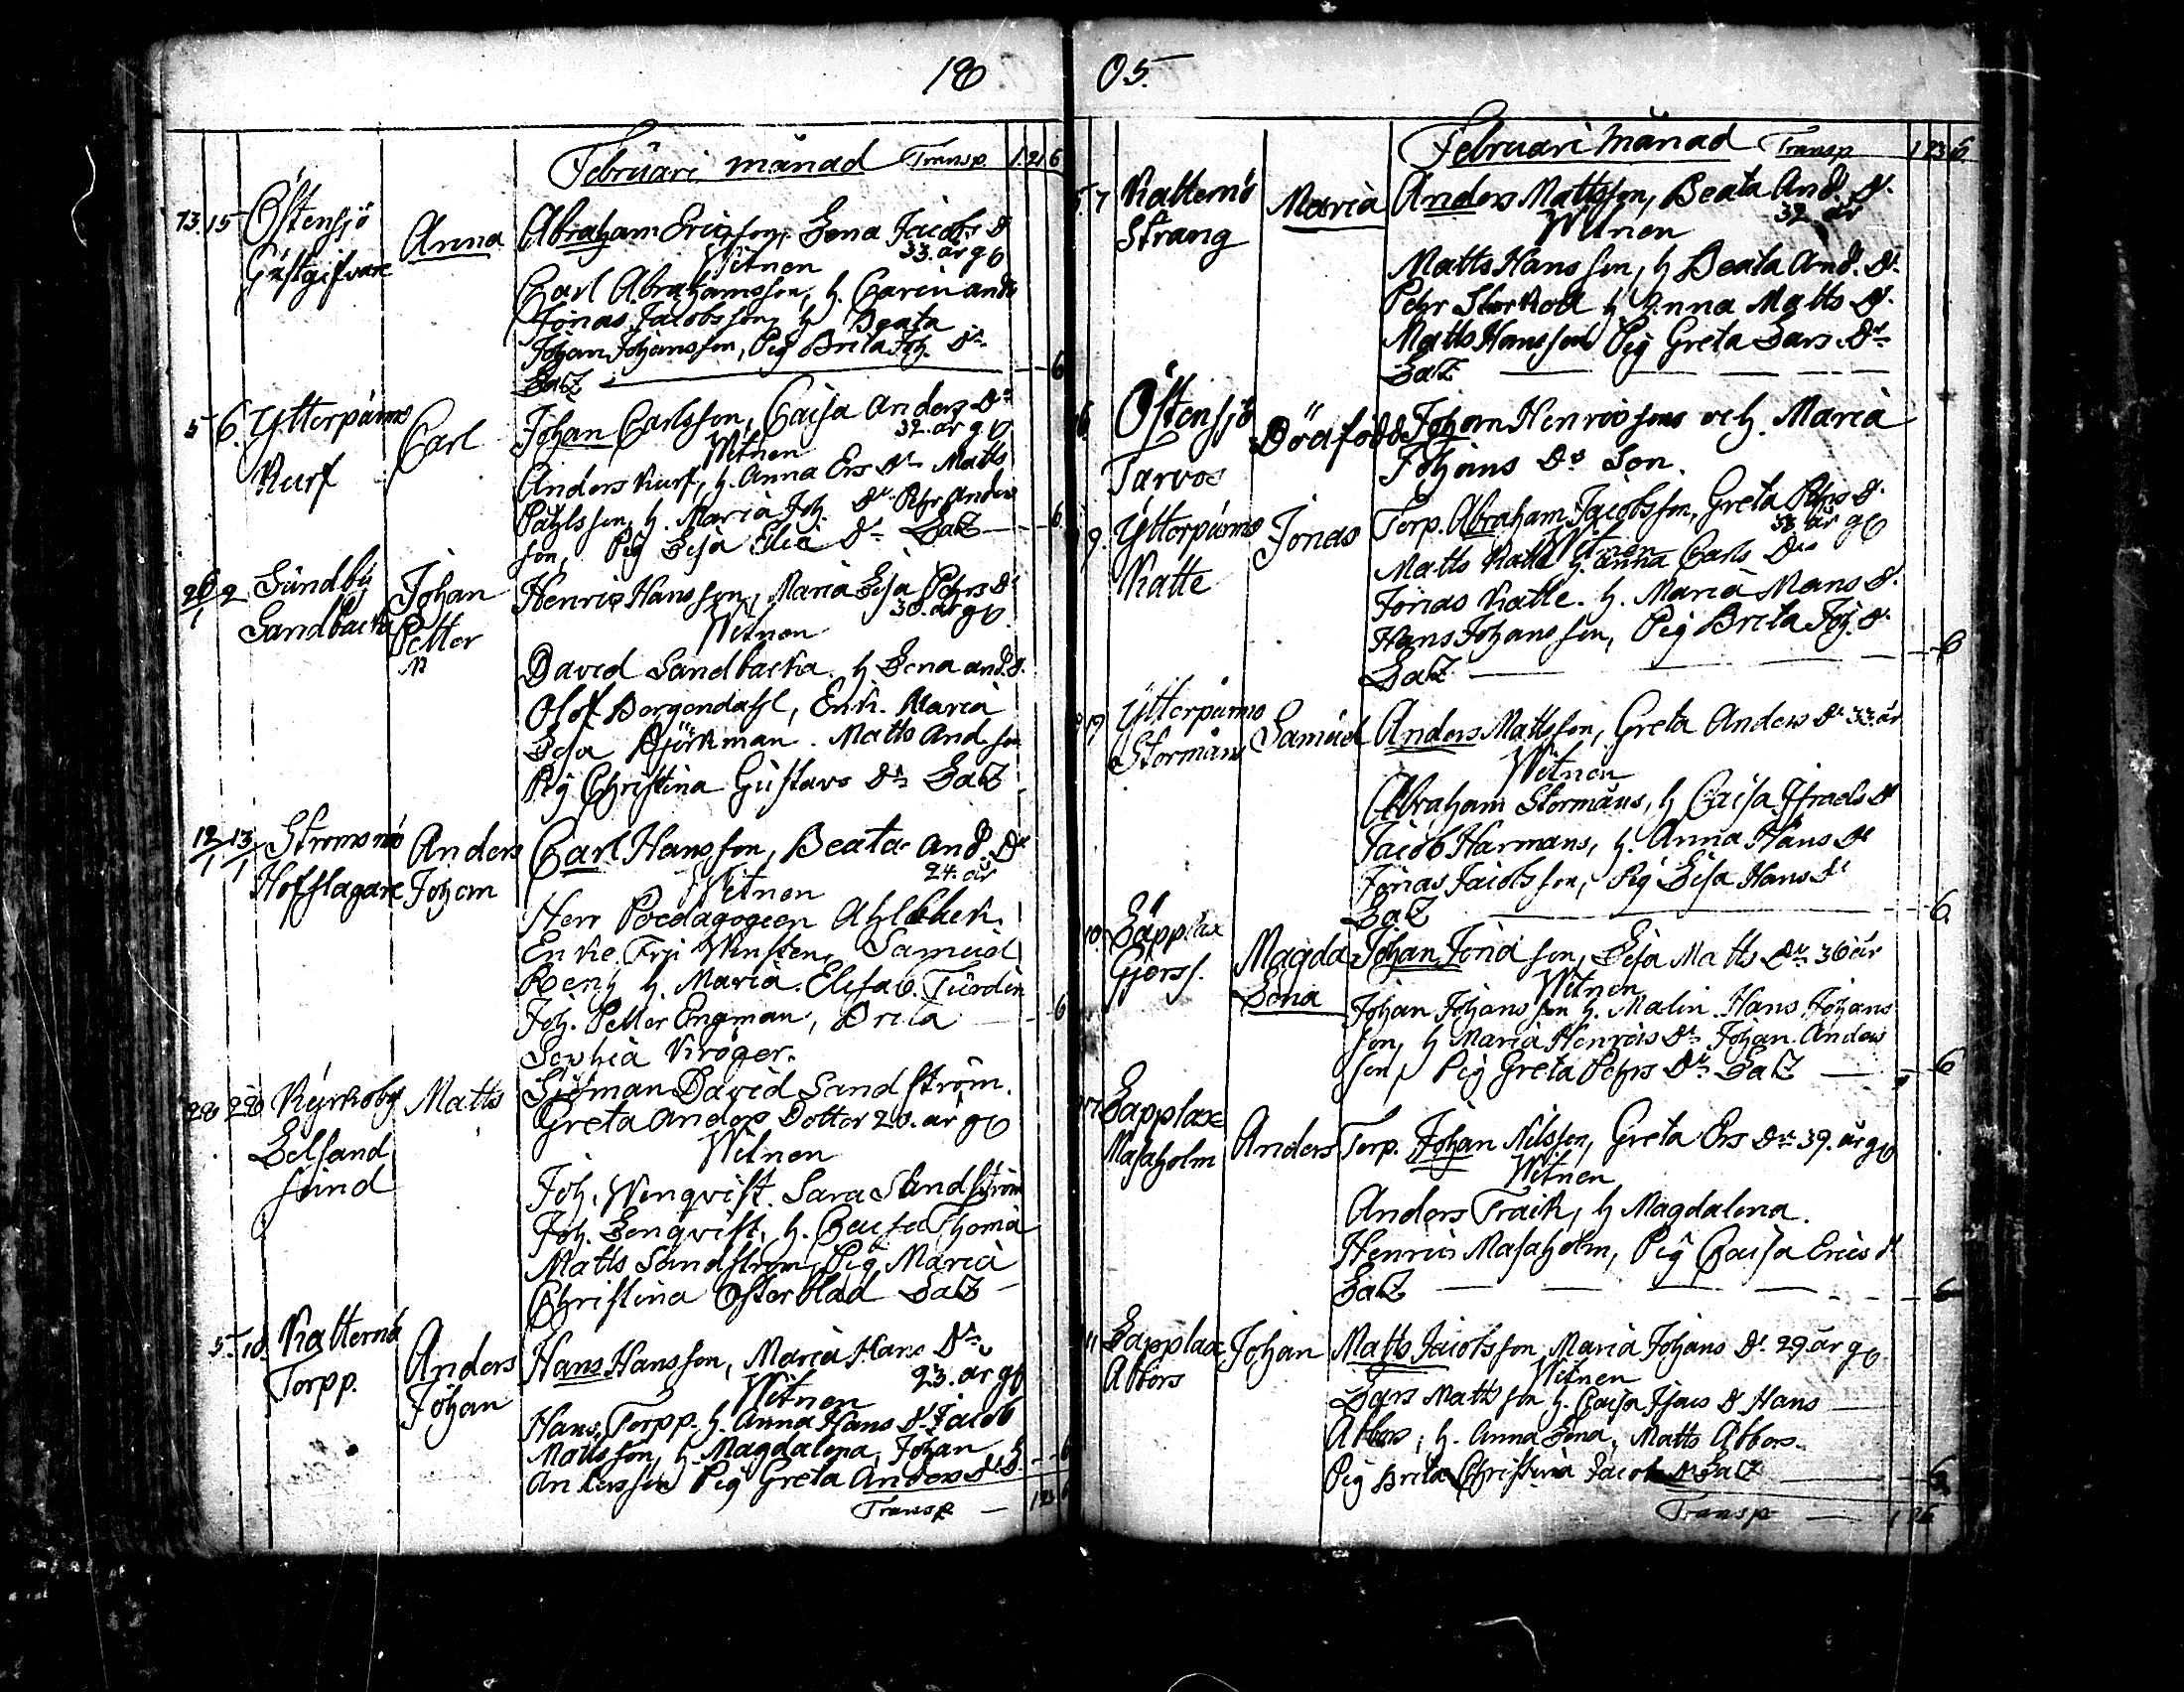 18 05.
Februari månad Transp. 1 21 6
13. 15 Östensjö Anna Abraham Ericsson, Lena Jacobs Dr
Gästgifvare 33. år gl
Witnen
Carl Abrahamsson, h. Carin And. Dr
Jonas Jacobsson, h Beata
Johan Johansson, Pig Brita Joh. Dr
Salz 6
5 6. Ytterpurmo Carl Johan Carlsson, Caisa Anders Dr
Kurf 32. år gl
Witnen
Anders Kurf, h. Anna Ers Dr Matts
Påhlsson, h. Maria Joh. Dr Pehr Anders
son, Pig Lisa Elia Dr Salz 6
26/1 2 Sundby Johan Henric Hansson, Maria Lisa Pehrs Dr
Sandbacka Petter 30. år gl.
Witnen
David Sandbacka h. Lena And. D.
Olof Borgendahl, Enk. Maria
Lisa Björkman. Matts And. son
Pig Christina Gustavs Dr Salz
12/1 13/1 Stromsnö Anders Carl Hansson, Beata And. Dr
Hofslagare Johan 24. år
Witnen
Herr Poedagogeen Ahlbeck.
Enke Fru Winsten, Samuel
h. Maria Elisab.
Joh. Petter Engman, Brita 6
Sophia Kröger.
28 28 Kyrkoby Matts Sjöman David Sandström.
Greta Anders Dotter 20. år gl
Witnen
sund Joh. Wenqvist. Sara Sandström
Joh. Lenqvist, h. Caisa Thoma
Matts Sandström, Pig Maria
Christina Österblad Salz
5. 10. Katternö Anders Hans Hansson, Maria Hans Dr
Torpp. Johan 23. år gl
Witnen
Hans Torpp. h. Anna Hans Dr Jacob
Mattsson, h. Magdalena, Johan
Andersson Pig Greta Anders Dr 6
Transp 1 23
Februari månad Transp 1 23 6
5. 7 Katternö Maria Anders Mattsson, Beata And. Dr
Strang 32. år
Witnen
Matts Hansson, h Beata And. Dr
Pehr Storkatt h Anna Matts Dr
Matts Hansson Pig Greta Lars Dr
Salz
6. Östensjö Dödfödd Johan Henricsons och h. Maria
Tarvos Johans Dr Son.
9. Ytterpurmo Jonas Torp. Abraham Jacobsson, Greta Pehrs Dr
Katte 38 år gl
Witnen
Matts Katte h. Anna Carls Dr
Jonas Katte. h. Maria Mans Dr
Hans Johansson, Pig Brita Joh. Dr
Salz 6
19 Ytterpurmo Samuel Anders Mattsson, Greta Anders Dr 33. år
Stormåns
Witnen
Abraham Stormåns, h Caisa Israels Dr
Jacob Harmans, h. Anna Hans Dr
Jonas Jacobsson, Pig Lisa Hans Dr
Salz 6.
10. Läpplax Magda Johan Jonasson, Lisa Matts Dr 36 år
Gjerss. Lena Witnen
Johan Johansson h. Malin. Hans Johans
son, h Maria Henrics Dr Johan. Anders
son, Pig Greta Pehrs Dr Salz 6
17 Lapplax Anders Torp. Johan Nilsson, Greta Ers Dr 39. år gl
Masaholm Witnen
Anders Träsk, h Magdalena.
Henric Masaholm, Pig Caisa Erics Dr
Salz 6
11 Lapplax Johan Matts Jacobsson Maria Johans Dr. 29. år gl
Abbors Witnen
Lars Mattsson h. Caisa Isacs Dr Hans
Abbors, h. Anna Lena, Matts Abbors.
Pig Brita Christina Jacobs Dr Salz 6.
Transp 1 26